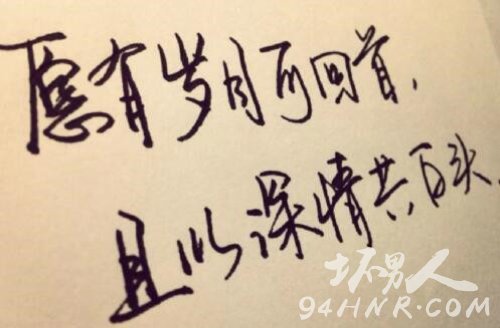 愿有岁月可回首,
且以深情共白头.
坏男人
94HNR.COM